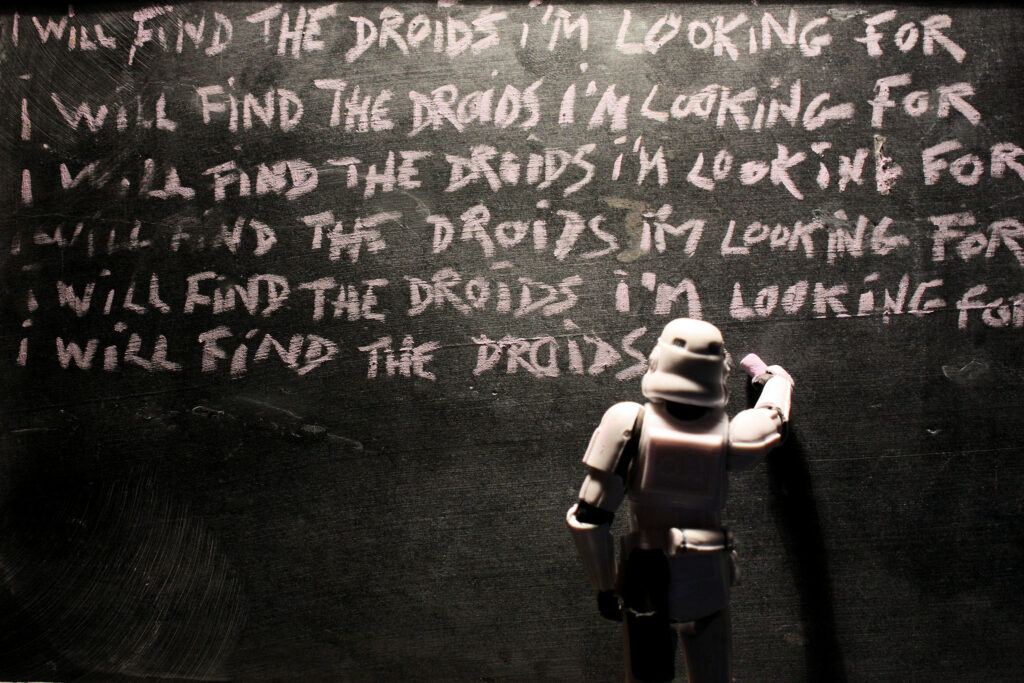 I WILL FIND THE DROIDS I'M LOOKING FOR
I WILL FIND THE DROIDS I'M LOOKING FOR
I WILL FIND THE DROIDS I'M LOOKING FOR
I WILL FIND THE DROIDS I'M LOOKING FOR
I WILL FIND THE DROIDS I'M LOOKING FOR
I WILL FIND THE DROIDS